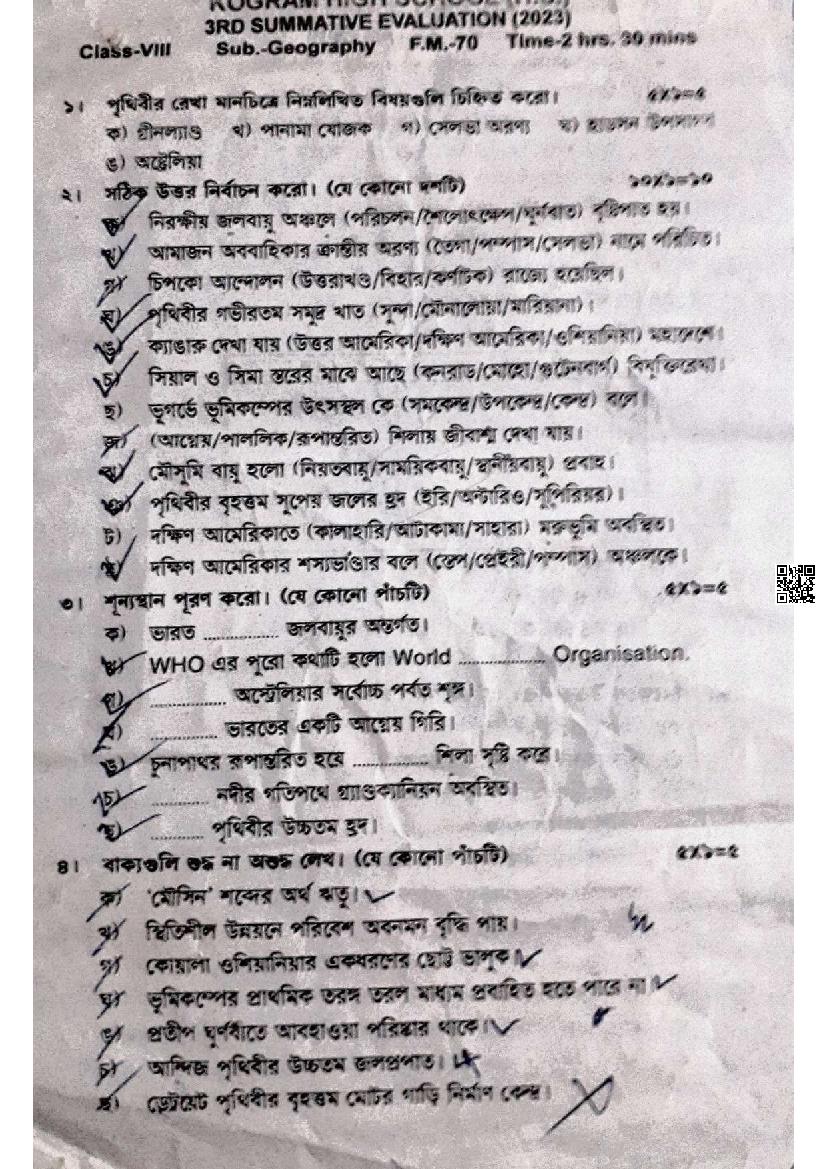 KOGRAM HIGH SCHOOL (H.S.)
3RD SUMMATIVE EVALUATION (2023)
Class-VIII Sub.-Geography F.M.-70 Time-2 hrs. 30 mins
১। পৃথিবীর রেখা মানচিত্রে নিম্নলিখিত বিষয়গুলি চিহ্নিত করো। ৫X১=৫
ক) গ্রীনল্যাণ্ড খ) পানামা যোজক গ) সেলভা অরণ্য ঘ) হাডসন উপসাগর
ঙ) অষ্ট্রেলিয়া
২। সঠিক উত্তর নির্বাচন করো। (যে কোনো দশটি) ১০X১=১০
ক) নিরক্ষীয় জলবায়ু অঞ্চলে (পরিচলন/শৈলোৎক্ষেপ/ঘূর্ণবাত) বৃষ্টিপাত হয়।
খ) আমাজন অববাহিকার ক্রান্তীয় অরণ্য (তৈগা/পম্পাস/সেলভা) নামে পরিচিত।
গ) চিপকো আন্দোলন (উত্তরাখণ্ড/বিহার/কর্ণাটক) রাজ্যে হয়েছিল।
ঘ) পৃথিবীর গভীরতম সমুদ্র খাত (সুন্দা/মৌনালোয়া/মারিয়ানা)।
ঙ) ক্যাঙারু দেখা যায় (উত্তর আমেরিকা/দক্ষিণ আমেরিকা/ওশিয়ানিয়া) মহাদেশে।
চ) সিয়াল ও সিমা স্তরের মাঝে আছে (কনরাড/মোহো/গুটেনবার্গ) বিযুক্তিরেখা।
ছ) ভূগর্ভে ভূমিকম্পের উৎসস্থল কে (সমকেন্দ্র/উপকেন্দ্র/কেন্দ্র) বলে।
জ) (আগ্নেয়/পাললিক/রূপান্তরিত) শিলায় জীবাশ্ম দেখা যায়।
ঝ) মৌসুমি বায়ু হলো (নিয়তবায়ু/সাময়িকবায়ু/স্থানীয়বায়ু) প্রবাহ।
ঞ) পৃথিবীর বৃহত্তম সুপেয় জলের হ্রদ (ইরি/অন্টারিও/সুপিরিয়র)।
ট) দক্ষিণ আমেরিকাতে (কালাহারি/আটাকামা/সাহারা) মরুভূমি অবস্থিত।
ঠ) দক্ষিণ আমেরিকার শস্যভাণ্ডার বলে (স্তেপ/প্রেইরী/পম্পাস) অঞ্চলকে।
৩। শূন্যস্থান পূরণ করো। (যে কোনো পাঁচটি) ৫X১=৫
ক) ভারত .............. জলবায়ুর অন্তর্গত।
খ) WHO এর পুরো কথাটি হলো World ................ Organisation.
গ) .............. অস্ট্রেলিয়ার সর্বোচ্চ পর্বত শৃঙ্গ।
ঘ) ............ ভারতের একটি আগ্নেয় গিরি।
ঙ) চুনাপাথর রূপান্তরিত হয়ে .............. শিলা সৃষ্টি করে।
চ) ........... নদীর গতিপথে গ্র্যাণ্ডক্যানিয়ন অবস্থিত।
ছ) .......... পৃথিবীর উচ্চতম হ্রদ।
৪। বাক্যগুলি শুদ্ধ না অশুদ্ধ লেখ। (যে কোনো পাঁচটি) ৫X১=৫
ক) 'মৌসিন' শব্দের অর্থ ঋতু।
খ) স্থিতিশীল উন্নয়নে পরিবেশ অবনমন বৃদ্ধি পায়।
গ) কোয়ালা ওশিয়ানিয়ার একধরণের ছোট ভালুক।
ঘ) ভূমিকম্পের প্রাথমিক তরঙ্গ তরল মাধ্যম প্রবাহিত হতে পারে না।
ঙ) প্রতীপ ঘূর্ণবাতে আবহাওয়া পরিষ্কার থাকে।
চ) আন্দিজ পৃথিবীর উচ্চতম জলপ্রপাত।
ছ) ডেট্রয়েট পৃথিবীর বৃহত্তম মোটর গাড়ি নির্মাণ কেন্দ্র।